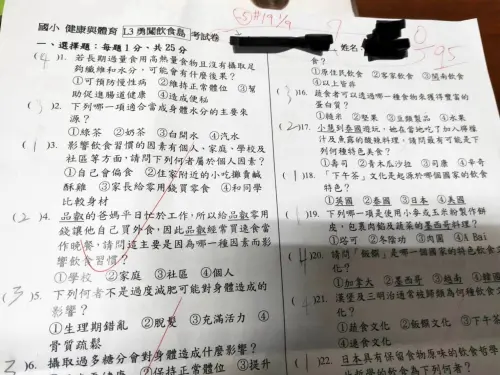 國小 健康與體育 1.3 勇闖飲食島 考試卷
一、選擇題：每題1分、共25分
(4)1. 若長期過量食用高熱量食物且沒有攝取足
夠纖維和水分，可能會有什麼後果？
①可預防慢性病 ②維持正常體位 ③幫
助促進腸道健康 ④造成便秘
(3)2. 下列哪一項適合當成身體水分的主要來
源？
①綠茶 ②奶茶 ③白開水 ④汽水
(1)3. 影響飲食習慣的因素有個人、家庭、學校及
社區等方面，請問下列何者屬於個人因素？
①自己會偏食 ②住家附近的小吃攤賣鹹
酥雞 ③家長給零用錢買零食 ④和同學
比較身材
(2)4. 品叡的爸媽平日忙於工作，所以給品叡零用
錢讓他自己買外食，因此品叡經常買速食當
作晚餐，請問這主要是因為哪一種因素而影
響飲食習慣？
①學校 ②家庭 ③社區 ④個人
(3)5. 下列何者不是過度減肥可能對身體造成的
影響？
①生理期錯亂 ②脫髮 ③充滿活力 ④
骨質疏鬆
3 6. 攝取過多糖分會對身體造成什麼影響？
②保持正常體位 ③提升
姓名
95
食？
①原住民飲食 ②客家飲食 ③閩南飲食
④以上皆非
(3)16. 蔬食者可以透過哪一種食物來獲得豐富的
蛋白質？
①糙米 ②堅果 ③豆類製品 ④水果
(2)17. 小慧到泰國遊玩，她在當地吃了加入檸檬
汁及魚露的酸辣料理，請問最有可能是下
列何種特色美食？
①壽司 ②青木瓜沙拉 ③司康 ④辛奇
(1)18. 「下午茶」文化是起源於哪一個國家的飲食
特色？
①英國 ②泰國 ③日本 ④美國
19. 下列哪一項是使用小麥或玉米粉製作餅
皮，包裹肉餡及蔬菜的墨西哥料理？
①塔可 ②冬陰功 ③肉圓 ④A Bai
20. 請問「飯饌」是哪一個國家的特色飲食文
化？
①加拿大 ②墨西哥 ③越南 ④韓國
21. 漢堡及三明治通常被歸類為何種飲食文
化？
①蔬食文化 ②飯饌文化 ③下午茶
④速食文化
22. 日本具有保留食物原味的飲食哲學